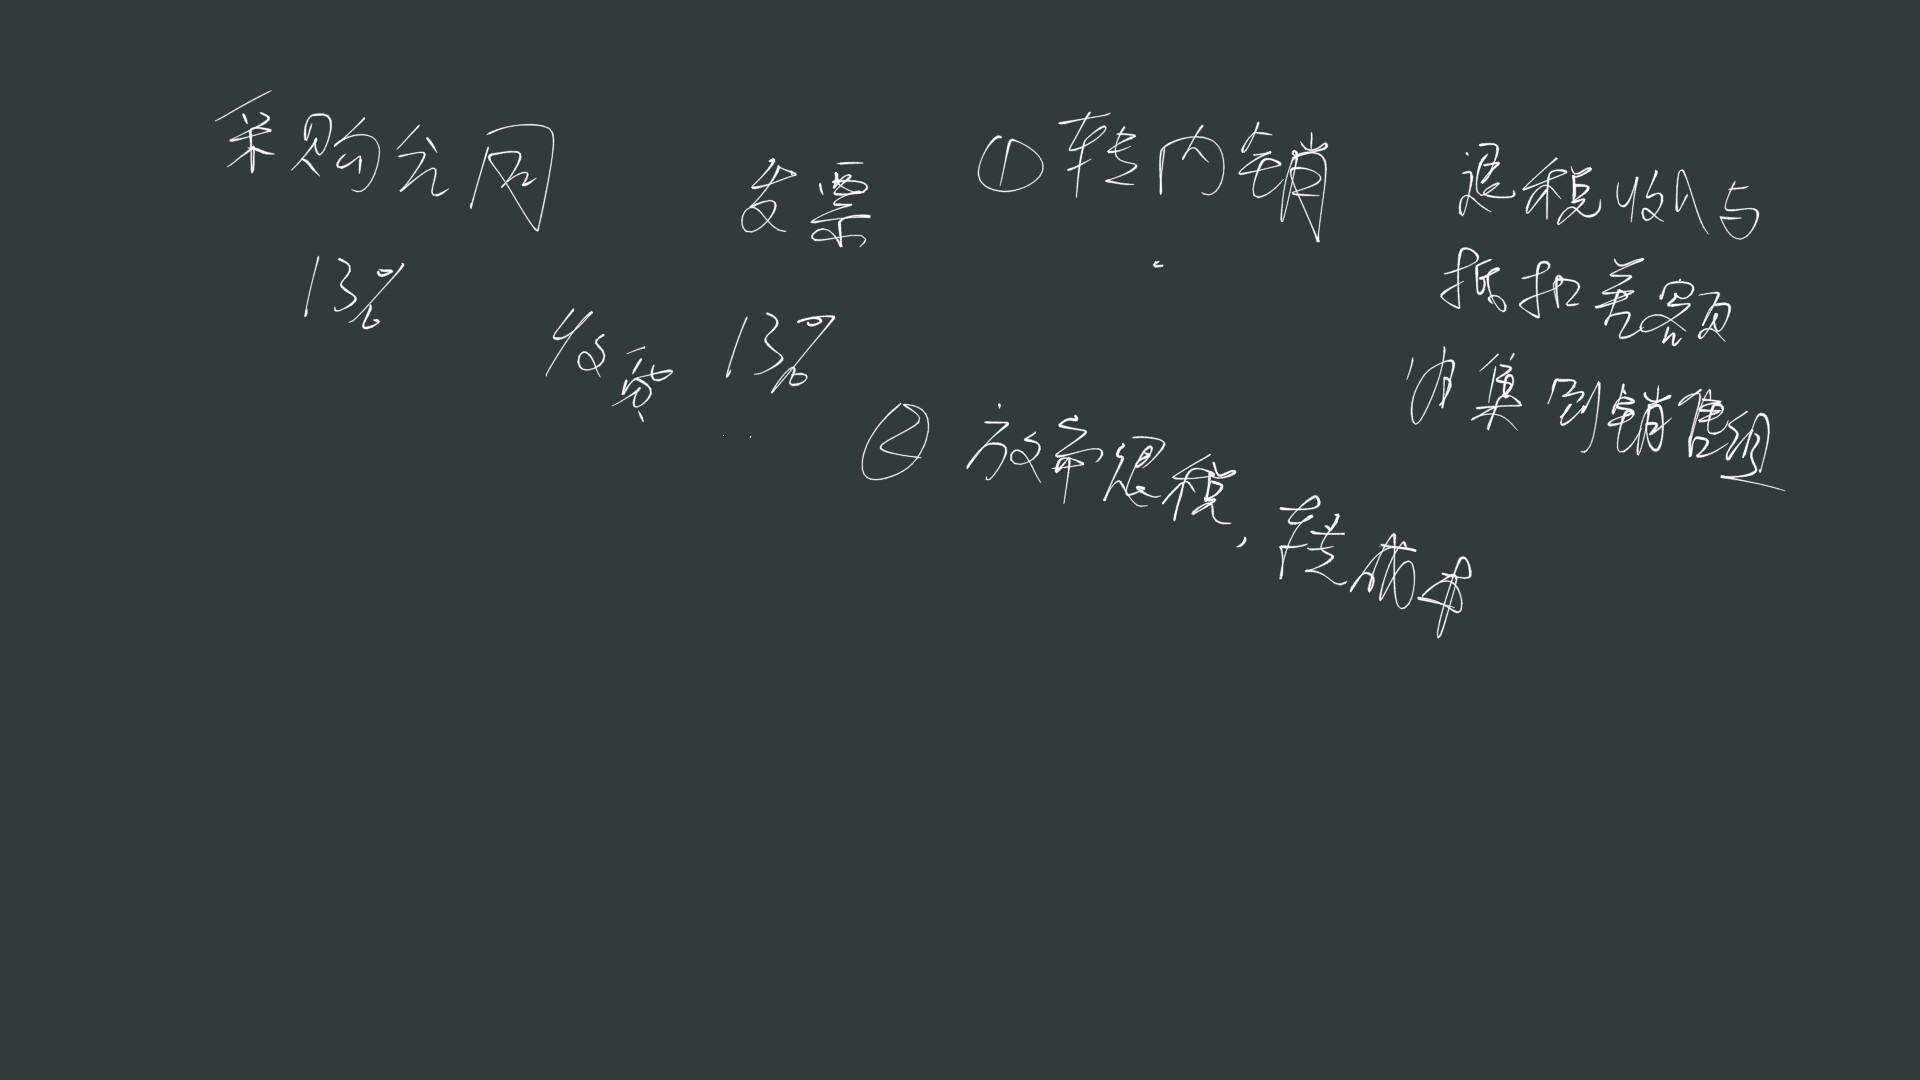 采购合同
13%
收货
发票
13%
①转内销
②放弃退税，转成本
退税收入与
抵扣差额
归集到销售组